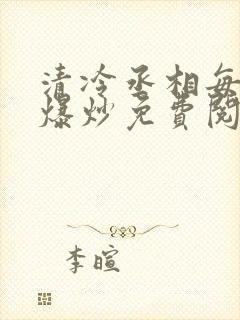 清冷丞相每
爆炒免费阅
李暄